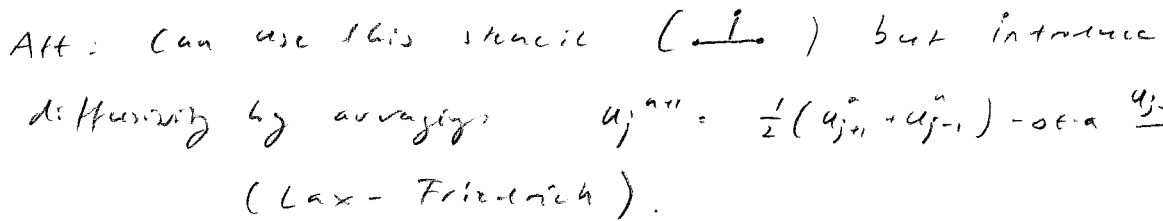 Alt: Can use this stencil ( ) but introduce
diffusivity by averaging: u_j^{n+1} = \frac{1}{2}(u_{j+1}^n + u_{j-1}^n) - Δt·a u_{j-
(Lax-Friedrich).